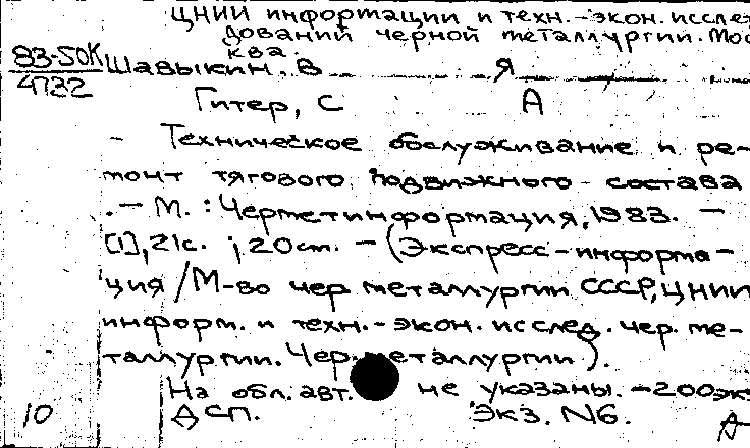 ЦНИИ информации и техн.-экон. иссле
дований черной металлургии. Мос
ква.
83-50К
4732
Шавыкин, В Я
Гитер, С А
- Техническое обслуживание и ре-
монт тягового подвижного состава
. — М. : Черметинформация, 1983. —
[1], 21с. ; 20 см. — (Экспресс-информа-
ция / М-во чер. металлургии СССР, ЦНИИ
информ. и техн.-экон. исслед. чер. ме-
таллургии. Чер. металлургии).
На обл. авт. не указаны. — 200 экз
10 ДСП. Экз. N6. А